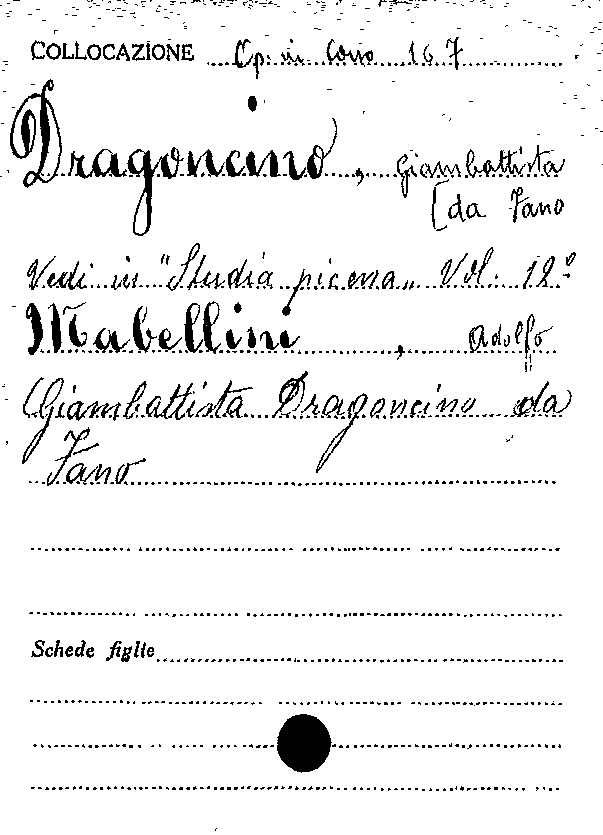 COLLOCAZIONE Op. in Corso 167
Dragoncino, Giambattista
[da Fano
Vedi in "Studia picena„ Vol. 12º
Mabellini, Adolfo
Giambattista Dragoncino da
Fano
Schede figlie